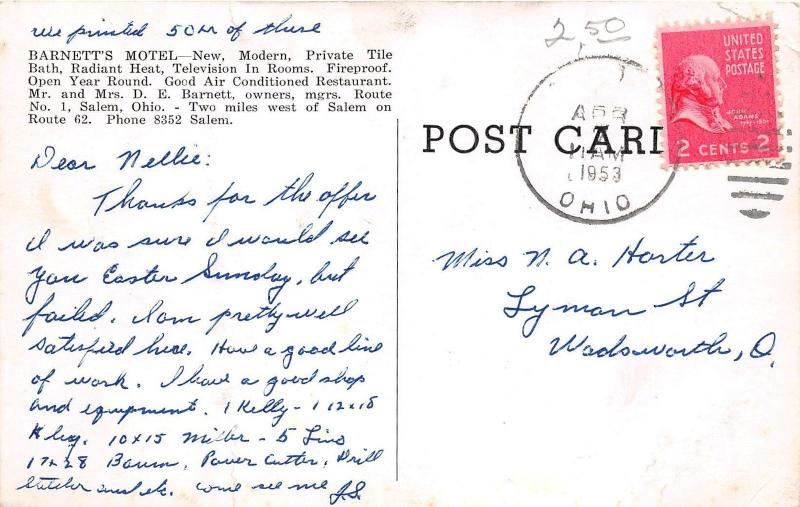 we printed 50M of these
BARNETT'S MOTEL—New, Modern, Private Tile
Bath, Radiant Heat, Television In Rooms. Fireproof.
Open Year Round. Good Air Conditioned Restaurant.
Mr. and Mrs. D. E. Barnett, owners, mgrs. Route
No. 1, Salem, Ohio. - Two miles west of Salem on
Route 62. Phone 8352 Salem.
Dear Nellie:
Thanks for the offer
I was sure I would see
you Easter Sunday, but
failed. I am pretty well
satisfied here. Have a good line
of work. I have a good shop
and equipment. 1 Kelly - 1 12x18
Kluge. 10x15 Miller - 5 Linos
17x28 Baum, Power Cutter, Drill
Stitcher and etc. come see me J.S.
2.50
UNITED
STATES
POSTAGE
JOHN
ADAMS
2 CENTS 2
POST CARD
APR
11 AM
1953
OHIO
Miss N. A. Harter
Lyman St
Wadsworth, O.